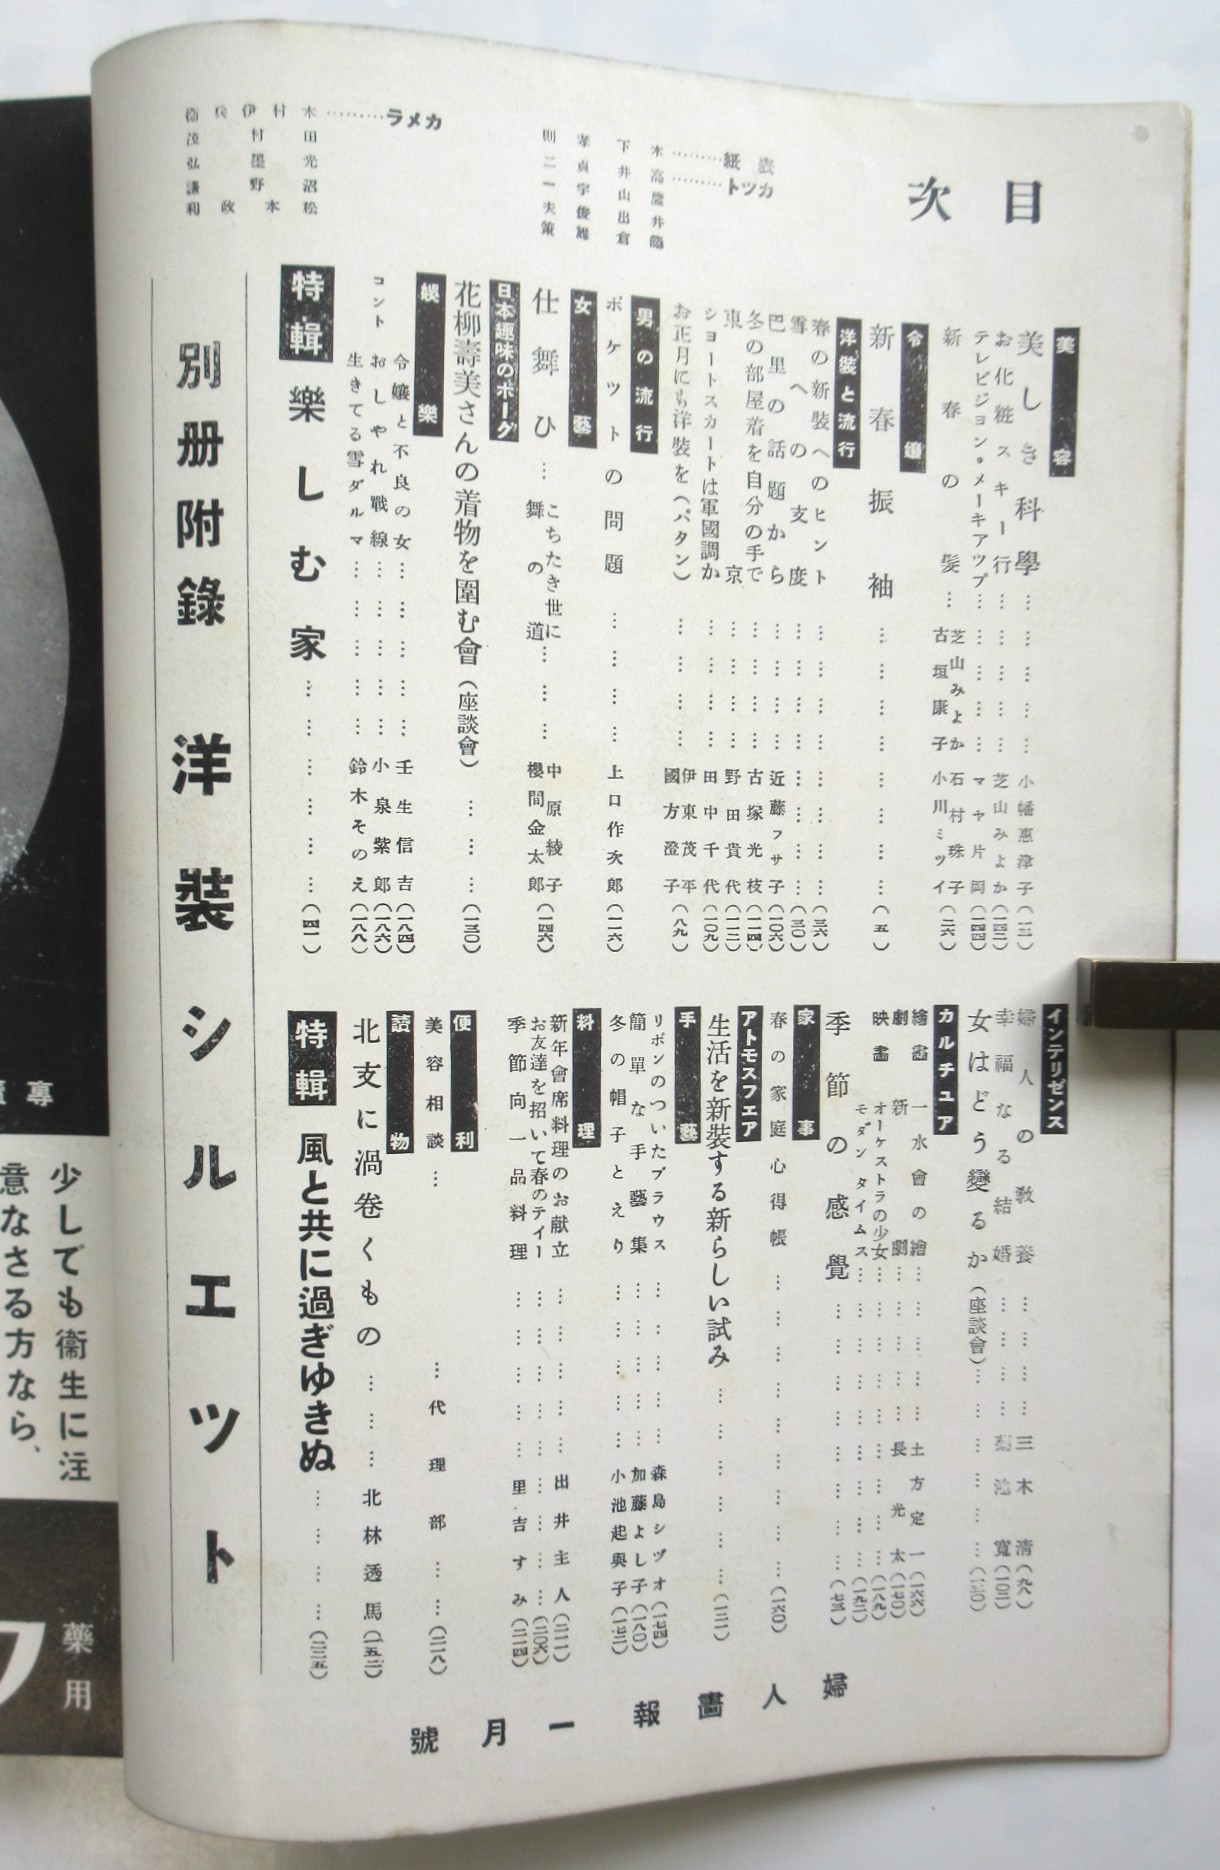 目次
表紙
カツト
カメラ
美容
美しき科學………小幡惠津子(一三)
お化粧スキー行………芝山みよか(一四三)
テレビジョン・メーキアツプ………マヤ片岡(一四四)
新春の髪…芝山みよか 石村珠子 古垣康子 小川ミツイ(二六)
令嬢
新春振袖………(五)
洋裝と流行
春の新裝へのヒント………(三六)
雪への支度………(三〇)
巴里の話題から………近藤フサ子(一〇六)
冬の部屋着を自分の手で………古塚光枝(一一四)
東京………野田貴代(一一三)
ショートスカートは軍國調か………田中千代(一〇九)
お正月にも洋裝を(パタン)………伊東茂平 國方澄子(八九)
男の流行
ポケツトの問題………上口作次郎(一一六)
女藝
仕舞ひ…こちたき世に 舞の道………中原綾子 櫻間金太郎(一四六)
日本趣味のボーグ
花柳壽美さんの着物を圍む會(座談會)………(一三〇)
娯樂
コント
令嬢と不良の女………壬生信吉(一八四)
おしやれ戰線………小泉紫郎(一八六)
生きてる雪ダルマ………鈴木そのえ(一八八)
特輯
樂しむ家………(四一)
インテリゼンス
婦人の敎養………三木清(九八)
幸福なる結婚………菊池寛(一〇二)
女はどう變るか(座談會)………
カルチュア
繪畫 一水會の繪………土方定一(一六六)
劇 新劇………長光太(一七〇)
映畫 オーケストラの少女………(一八九)
モダンタイムス………(一九二)
季節の感覺………(七三)
家事
春の家庭心得帳………(一六〇)
アトモスフェア
生活を新裝する新らしい試み………(一二一)
手藝
リボンのついたブラウス………森島シヅオ(一七四)
簡單な手藝集………加藤よし子(一八〇)
冬の帽子とえり………小池起與子(一七二)
料理
新年會席料理のお献立………出井主人(二一一)
お友達を招いて春のテイー………(二〇六)
季節向一品料理………里吉すみ(二一四)
便利
美容相談………代理部………(二一八)
讀物
北支に渦卷くもの………北林透馬(一五二)
特輯
風と共に過ぎゆきぬ………(二二五)
別册附錄 洋裝シルエツト
婦人畫報一月號
專
少しでも衞生に注
意なさる方なら、
藥用